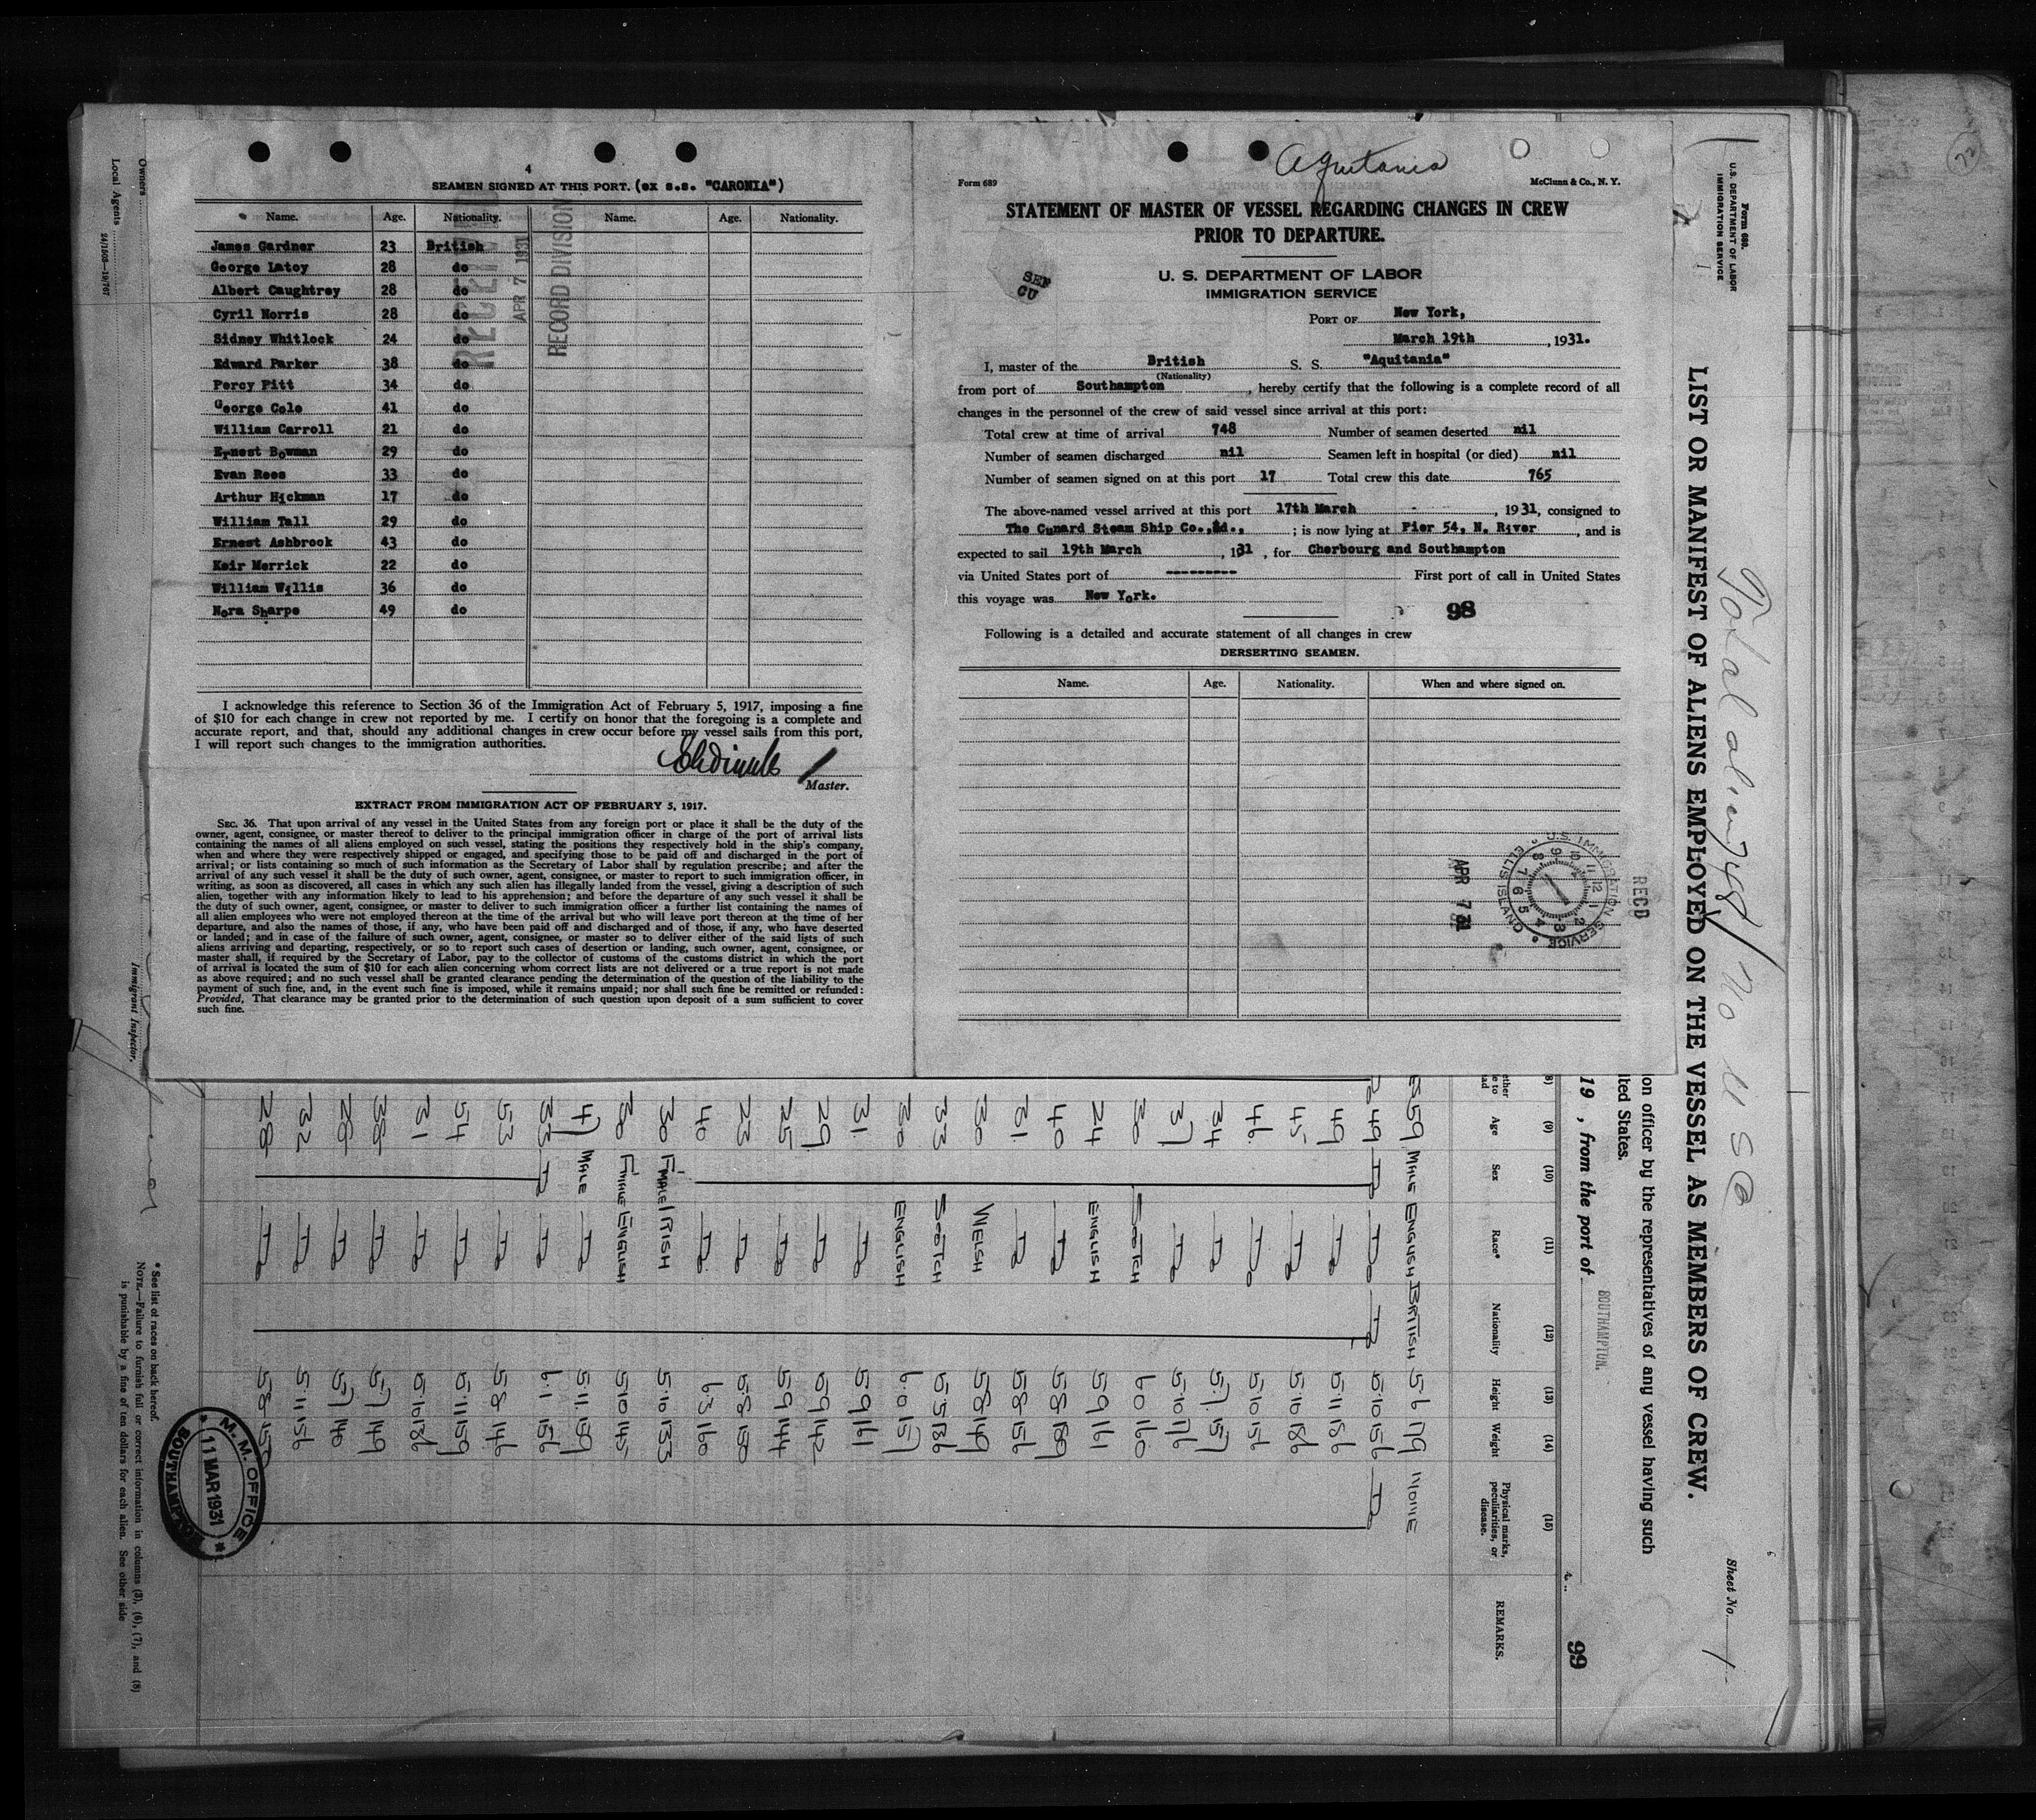 4
SEAMEN SIGNED AT THIS PORT. (ex s.s. "CARONIA")
Name. Age. Nationality. Name. Age. Nationality.
James Gardner 23 British
George Latoy 28 do
Albert Caughtrey 28 do
Cyril Norris 28 do
Sidney Whitlock 24 do
Edward Parker 38 do
Percy Pitt 34 do
George Cole 41 do
William Carroll 21 do
Ernest Bowman 29 do
Evan Rees 33 do
Arthur Hickman 17 do
William Tall 29 do
Ernest Ashbrook 43 do
Keir Merrick 22 do
William Willis 36 do
Nora Sharpe 49 do
RECEIVED
APR 7 1931
RECORD DIVISION
I acknowledge this reference to Section 36 of the Immigration Act of February 5, 1917, imposing a fine
of $10 for each change in crew not reported by me. I certify on honor that the foregoing is a complete and
accurate report, and that, should any additional changes in crew occur before my vessel sails from this port,
I will report such changes to the immigration authorities.
Master.
EXTRACT FROM IMMIGRATION ACT OF FEBRUARY 5, 1917.
SEC. 36. That upon arrival of any vessel in the United States from any foreign port or place it shall be the duty of the
owner, agent, consignee, or master thereof to deliver to the principal immigration officer in charge of the port of arrival lists
containing the names of all aliens employed on such vessel, stating the positions they respectively hold in the ship's company,
when and where they were respectively shipped or engaged, and specifying those to be paid off and discharged in the port of
arrival; or lists containing so much of such information as the Secretary of Labor shall by regulation prescribe; and after the
arrival of any such vessel it shall be the duty of such owner, agent, consignee, or master to report to such immigration officer, in
writing, as soon as discovered, all cases in which any such alien has illegally landed from the vessel, giving a description of such
alien, together with any information likely to lead to his apprehension; and before the departure of any such vessel it shall be
the duty of such owner, agent, consignee, or master to deliver to such immigration officer a further list containing the names of
all alien employees who were not employed thereon at the time of the arrival but who will leave port thereon at the time of her
departure, and also the names of those, if any, who have been paid off and discharged and of those, if any, who have deserted
or landed; and in case of the failure of such owner, agent, consignee, or master so to deliver either of the said lists of such
aliens arriving and departing, respectively, or so to report such cases of desertion or landing, such owner, agent, consignee, or
master shall, if required by the Secretary of Labor, pay to the collector of customs of the customs district in which the port
of arrival is located the sum of $10 for each alien concerning whom correct lists are not delivered or a true report is not made
as above required; and no such vessel shall be granted clearance pending the determination of the question of the liability to the
payment of such fine, and, in the event such fine is imposed, while it remains unpaid; nor shall such fine be remitted or refunded:
Provided, That clearance may be granted prior to the determination of such question upon deposit of a sum sufficient to cover
such fine.
Aquitania
Form 689
McClunn & Co., N. Y.
STATEMENT OF MASTER OF VESSEL REGARDING CHANGES IN CREW
PRIOR TO DEPARTURE.
U. S. DEPARTMENT OF LABOR
IMMIGRATION SERVICE
PORT OF New York,
March 19th, 1931.
I, master of the British S. S. "Aquitania"
(Nationality)
from port of Southampton, hereby certify that the following is a complete record of all
changes in the personnel of the crew of said vessel since arrival at this port:
Total crew at time of arrival 748 Number of seamen deserted nil
Number of seamen discharged nil Seamen left in hospital (or died) nil
Number of seamen signed on at this port 17 Total crew this date 765
The above-named vessel arrived at this port 17th March - , 1931, consigned to
The Cunard Steam Ship Co.,Ld., ; is now lying at Pier 54, N. River, and is
expected to sail 19th March, 131, for Cherbourg and Southampton
via United States port of --------- First port of call in United States
this voyage was New York.
98
Following is a detailed and accurate statement of all changes in crew
DERSERTING SEAMEN.
Name. Age. Nationality. When and where signed on.
APR 7 31
U.S. IMMIGRATION SERVICE ELLIS ISLAND
RECD
Form 689.
U. S. DEPARTMENT OF LABOR
IMMIGRATION SERVICE
Total aliens 748
No U S C
LIST OR MANIFEST OF ALIENS EMPLOYED ON THE VESSEL AS MEMBERS OF CREW.
Sheet No. 1
on officer by the representatives of any vessel having such
ted States.
19 , from the port of SOUTHAMPTON.
99
(9) (10) (11) (12) (13) (14) (15)
Age Sex Race* Nationality Height Weight Physical marks, peculiarities, or disease. REMARKS.
59 MALE ENGLISH BRITISH 5·6 179 NONE
49 Do Do Do 5·10 156 Do
49 Do 5·11 186
45 Do 5·10 186
46 Do 5·10 156
34 Do 5·7 157
37 Do 5·10 176
30 SCOTCH 6·0 160
24 ENGLISH 5·9 161
40 Do 5·8 189
31 Do 5·8 156
30 WELSH 5·8 149
33 SCOTCH 5·5 136
30 ENGLISH 6·0 157
31 Do 5·9 161
29 Do 5·9 142
25 Do 5·9 144
23 Do 5·8 150
40 Do 6·3 160
30 FMALE IRISH 5·10 133
30 FMALE ENGLISH 5·10 145
47 MALE Do 5·11 159
33 Do Do 6·1 156
53 Do 5·8 146
54 Do 5·11 159
31 Do 5·10 136
38 Do 5·7 149
28 Do 5·7 140
32 Do 5·11 156
28 Do 5·8 150
* See list of races on back hereof.
NOTE.—Failure to furnish full or correct information in columns (3), (6), (7), and (8)
is punishable by a fine of ten dollars for each alien. See other side
M. M. OFFICE
11 MAR 1931
SOUTHAMPTON
Owners
Local Agents
24/1508—19/767
Immigrant Inspector.